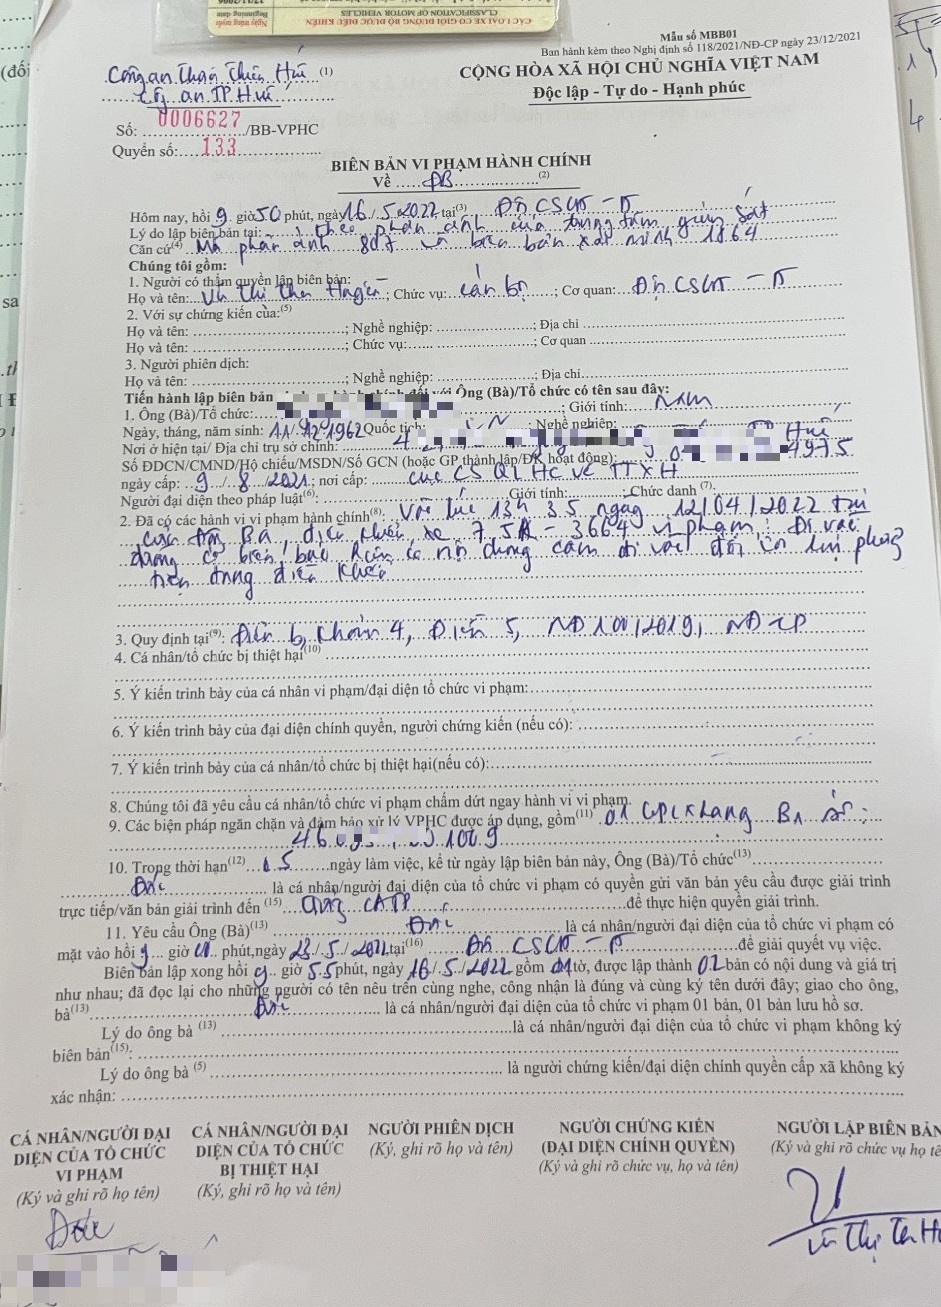 CÁC LOẠI XE CƠ GIỚI ĐƯỜNG BỘ ĐƯỢC ĐIỀU KHIỂN
CLASSIFICATION OF MOTOR VEHICLES
Ngày trúng tuyển
Beginning date
Mẫu số MBB01
Ban hành kèm theo Nghị định số 118/2021/NĐ-CP ngày 23/12/2021
Công an Thừa Thiên Huế (1)
Công an TP. Huế
CỘNG HÒA XÃ HỘI CHỦ NGHĨA VIỆT NAM
Độc lập - Tự do - Hạnh phúc
Số: 0006627 /BB-VPHC
Quyển số: 133
BIÊN BẢN VI PHẠM HÀNH CHÍNH
Về ĐB (2)
Hôm nay, hồi 9 giờ 50 phút, ngày 16/5/2022 tại(3) Đội CSGT - TT
Lý do lập biên bản tại: theo phản ánh của trung tâm giám sát
Căn cứ(4) Mã phản ánh và biên bản xác minh 1864
Chúng tôi gồm:
1. Người có thẩm quyền lập biên bản:
Họ và tên: Thị ; Chức vụ: cán bộ ; Cơ quan: Đội CSGT - TT
2. Với sự chứng kiến của:(5)
Họ và tên: ; Nghề nghiệp: ; Địa chỉ
Họ và tên: ; Chức vụ: ; Cơ quan
3. Người phiên dịch:
Họ và tên: ; Nghề nghiệp: ; Địa chỉ
Tiến hành lập biên bản với Ông (Bà)/Tổ chức có tên sau đây:
1. Ông (Bà)/Tổ chức: ; Giới tính: Nam
Ngày, tháng, năm sinh: 1962 Quốc tịch: Nghề nghiệp:
Nơi ở hiện tại/ Địa chỉ trụ sở chính: Huế
Số ĐDCN/CMND/Hộ chiếu/MSDN/Số GCN (hoặc GP thành lập/ĐK hoạt động): 4975
ngày cấp: 9/8/2021; nơi cấp: cục CS QLHC về TTXH
Người đại diện theo pháp luật(6): Giới tính: Chức danh (7):
2. Đã có các hành vi vi phạm hành chính(8): Vào lúc 13h 35 ngày 12/04/2022 tại
BA, điều khiển xe 75A - 3664 vi phạm: Đi vào
đường có biển báo có nội dung cấm đi vào đối với loại phương
tiện đang điều khiển
3. Quy định tại(9): Điểm b, Khoản 4, Điều 5, NĐ 100/2019/NĐ-CP
4. Cá nhân/tổ chức bị thiệt hại(10)
5. Ý kiến trình bày của cá nhân vi phạm/đại diện tổ chức vi phạm:
6. Ý kiến trình bày của đại diện chính quyền, người chứng kiến (nếu có):
7. Ý kiến trình bày của cá nhân/tổ chức bị thiệt hại(nếu có):
8. Chúng tôi đã yêu cầu cá nhân/tổ chức vi phạm chấm dứt ngay hành vi vi phạm.
9. Các biện pháp ngăn chặn và đảm bảo xử lý VPHC được áp dụng, gồm(11) 01 GPLX hạng B2 số:
1009
10. Trong thời hạn(12) 05 ngày làm việc, kể từ ngày lập biên bản này, Ông (Bà)/Tổ chức(13)
là cá nhân/người đại diện của tổ chức vi phạm có quyền gửi văn bản yêu cầu được giải trình
trực tiếp/văn bản giải trình đến (15) CATP để thực hiện quyền giải trình.
11. Yêu cầu Ông (Bà)(13) là cá nhân/người đại diện của tổ chức vi phạm có
mặt vào hồi giờ phút,ngày 23/5/2022 tại(16) Đội CSGT - TT để giải quyết vụ việc.
Biên bản lập xong hồi 9 giờ 55 phút, ngày 16/5/2022 gồm 01 tờ, được lập thành 02 bản có nội dung và giá trị
như nhau; đã đọc lại cho những người có tên nêu trên cùng nghe, công nhận là đúng và cùng ký tên dưới đây; giao cho ông,
bà(13) là cá nhân/người đại diện của tổ chức vi phạm 01 bản, 01 bản lưu hồ sơ.
Lý do ông bà (13) là cá nhân/người đại diện của tổ chức vi phạm không ký
biên bản(15):
Lý do ông bà (5) là người chứng kiến/đại diện chính quyền cấp xã không ký
xác nhận:
CÁ NHÂN/NGƯỜI ĐẠI DIỆN CỦA TỔ CHỨC VI PHẠM
(Ký và ghi rõ họ tên)
CÁ NHÂN/NGƯỜI ĐẠI DIỆN CỦA TỔ CHỨC BỊ THIỆT HẠI
(Ký, ghi rõ họ và tên)
NGƯỜI PHIÊN DỊCH
(Ký, ghi rõ họ và tên)
NGƯỜI CHỨNG KIẾN
(ĐẠI DIỆN CHÍNH QUYỀN)
(Ký và ghi rõ chức vụ, họ và tên)
NGƯỜI LẬP BIÊN BẢN
(Ký và ghi rõ chức vụ họ tê